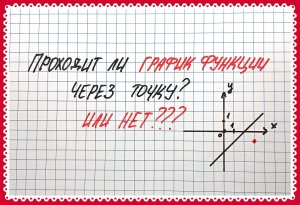 ПРОХОДИТ ЛИ ГРАФИК ФУНКЦИИ
ЧЕРЕЗ ТОЧКУ?
ИЛИ НЕТ???
y
1
0 1 x